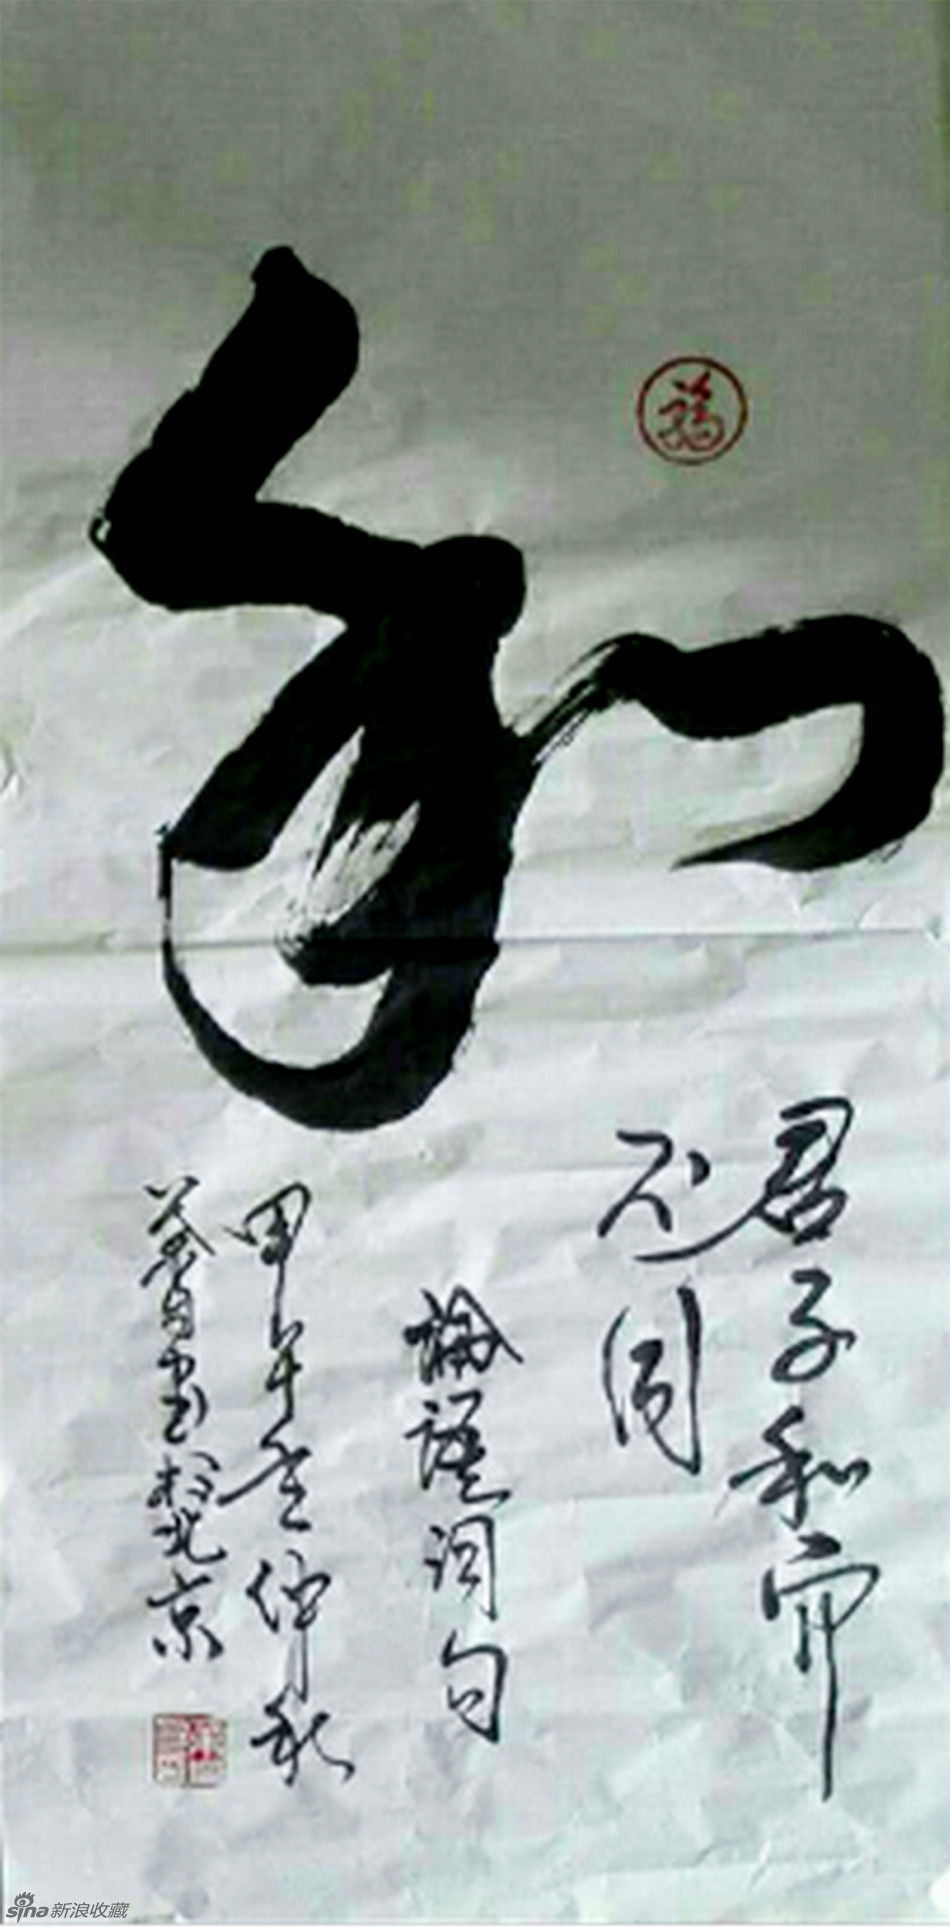 和
福
君子和而
不同
論語词句
甲午年仲秋
書於北京
sina新浪收藏